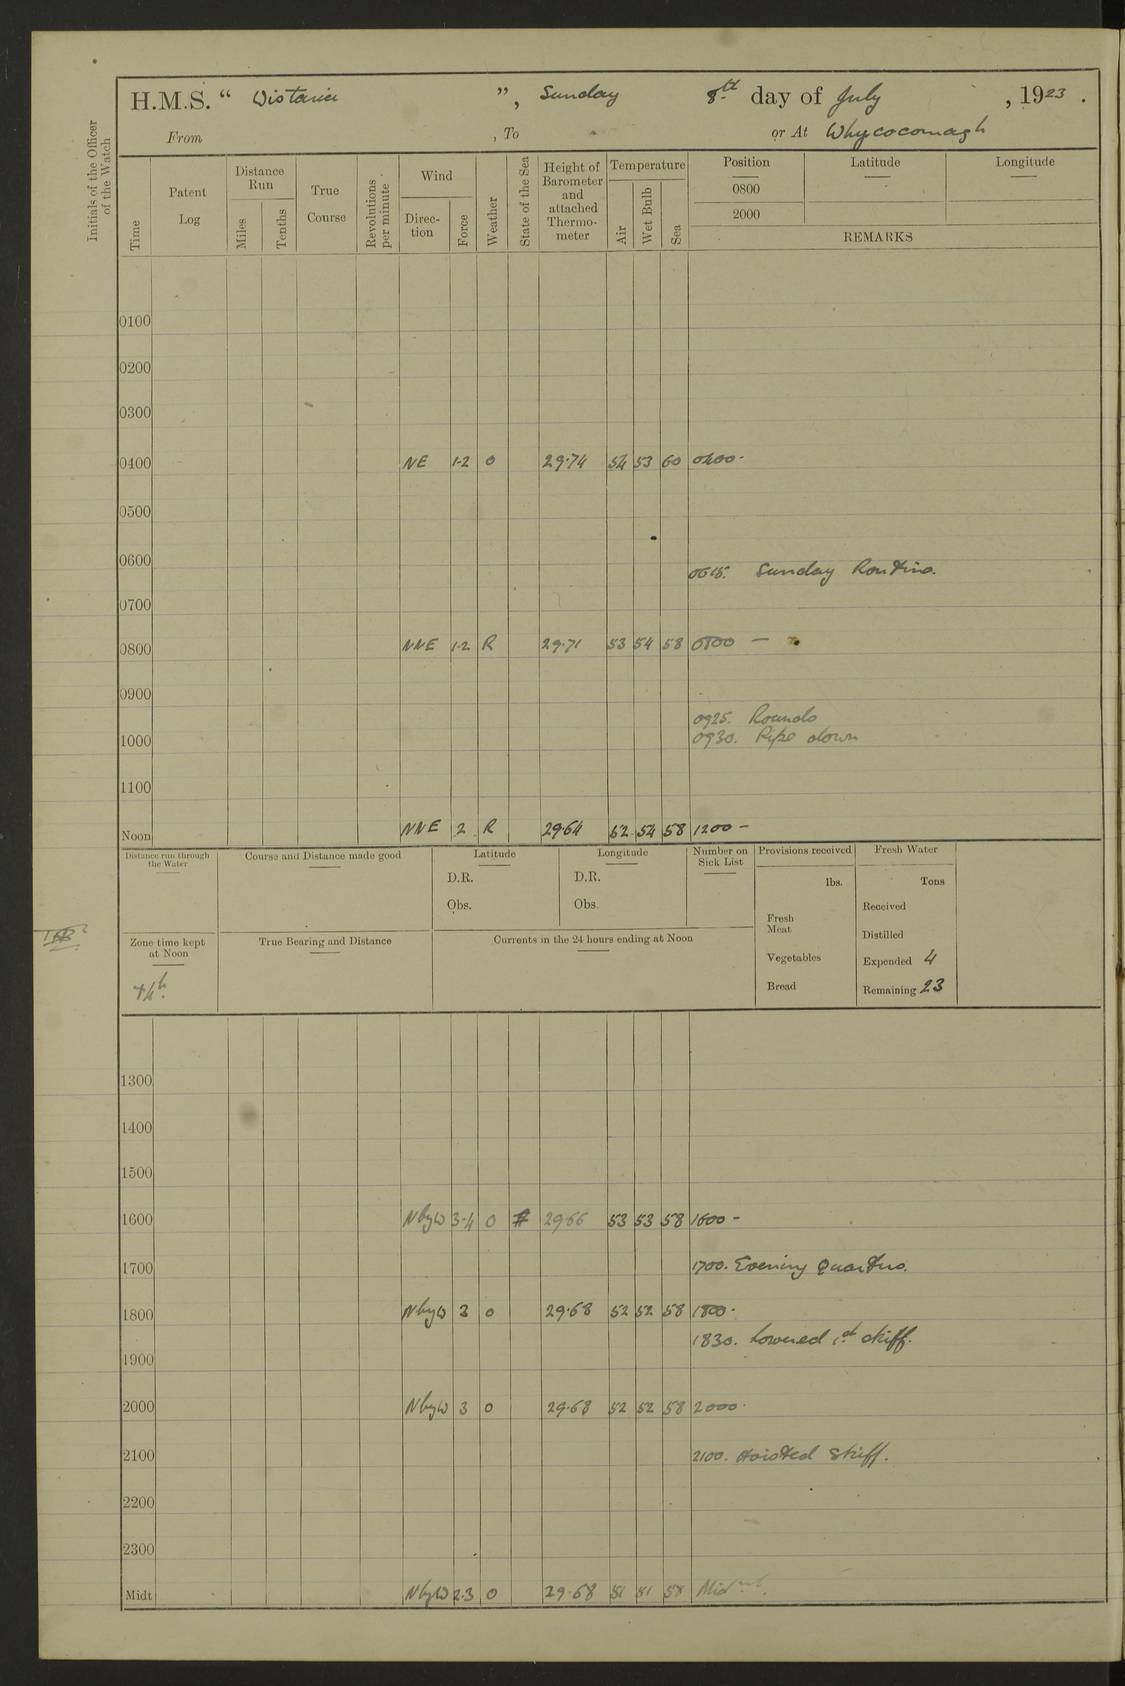 H.M.S. “ Wistaria ”, Sunday 8th day of July , 1923 .
From , To or At Whycocomagh
Initials of the Officer of the Watch
Time
Patent Log
Distance Run
Miles
Tenths
True Course
Revolutions per minute
Wind
Direc-tion
Force
Weather
State of the Sea
Height of Barometer and attached Thermo-meter
Temperature
Air
Wet Bulb
Sea
Position
0800
2000
Latitude
Longitude
REMARKS
0100
0200
0300
0400 NE 1-2 O 29.74 54 53 60 0400-
0500
0600
0615. Sunday Routine.
0700
0800 NNE 1-2 R 29.71 53 54 58 0800 —
0900
0925. Rounds
0930. Pipe down
1000
1100
Noon NNE 2 R 29.64 52 54 58 1200 -
Distance run through the Water
Course and Distance made good
Latitude
D.R.
Obs.
Longitude
D.R.
Obs.
Number on Sick List
Provisions received
lbs.
Fresh Meat
Vegetables
Bread
Fresh Water
Tons
Received
Distilled
Expended 4
Remaining 23
Zone time kept at Noon
+4h.
True Bearing and Distance
Currents in the 24 hours ending at Noon
1300
1400
1500
1600 NbyW 3-4 O 29.66 53 53 58 1600 -
1700 1700. Evening Quarters.
1800 NbyW 3 O 29.68 52 52 58 1800-
1830. Lowered 1st skiff.
1900
2000 NbyW 3 O 29.68 52 52 58 2000.
2100 2100. Hoisted Skiff.
2200
2300
Midt NbyW 2-3 O 29.68 51 51 58